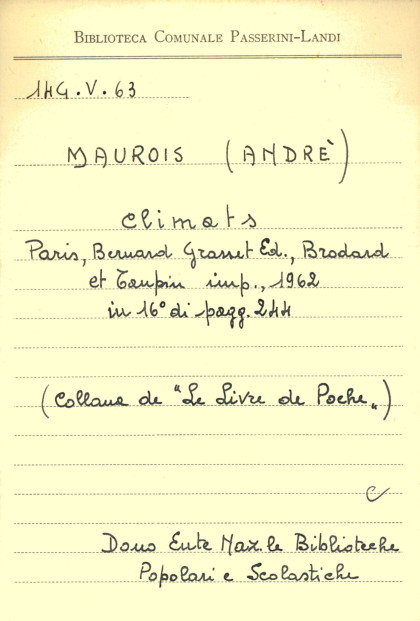 BIBLIOTECA COMUNALE PASSERINI-LANDI
14G.V.63
MAUROIS (ANDRÈ)
Climats
Paris, Bernard Grasset Ed., Brodard
et Taupin imp., 1962
in 16° di pagg. 244
(Collana de "Le Livre de Poche„)
C
Dono Ente Naz.le Biblioteche
Popolari e Scolastiche